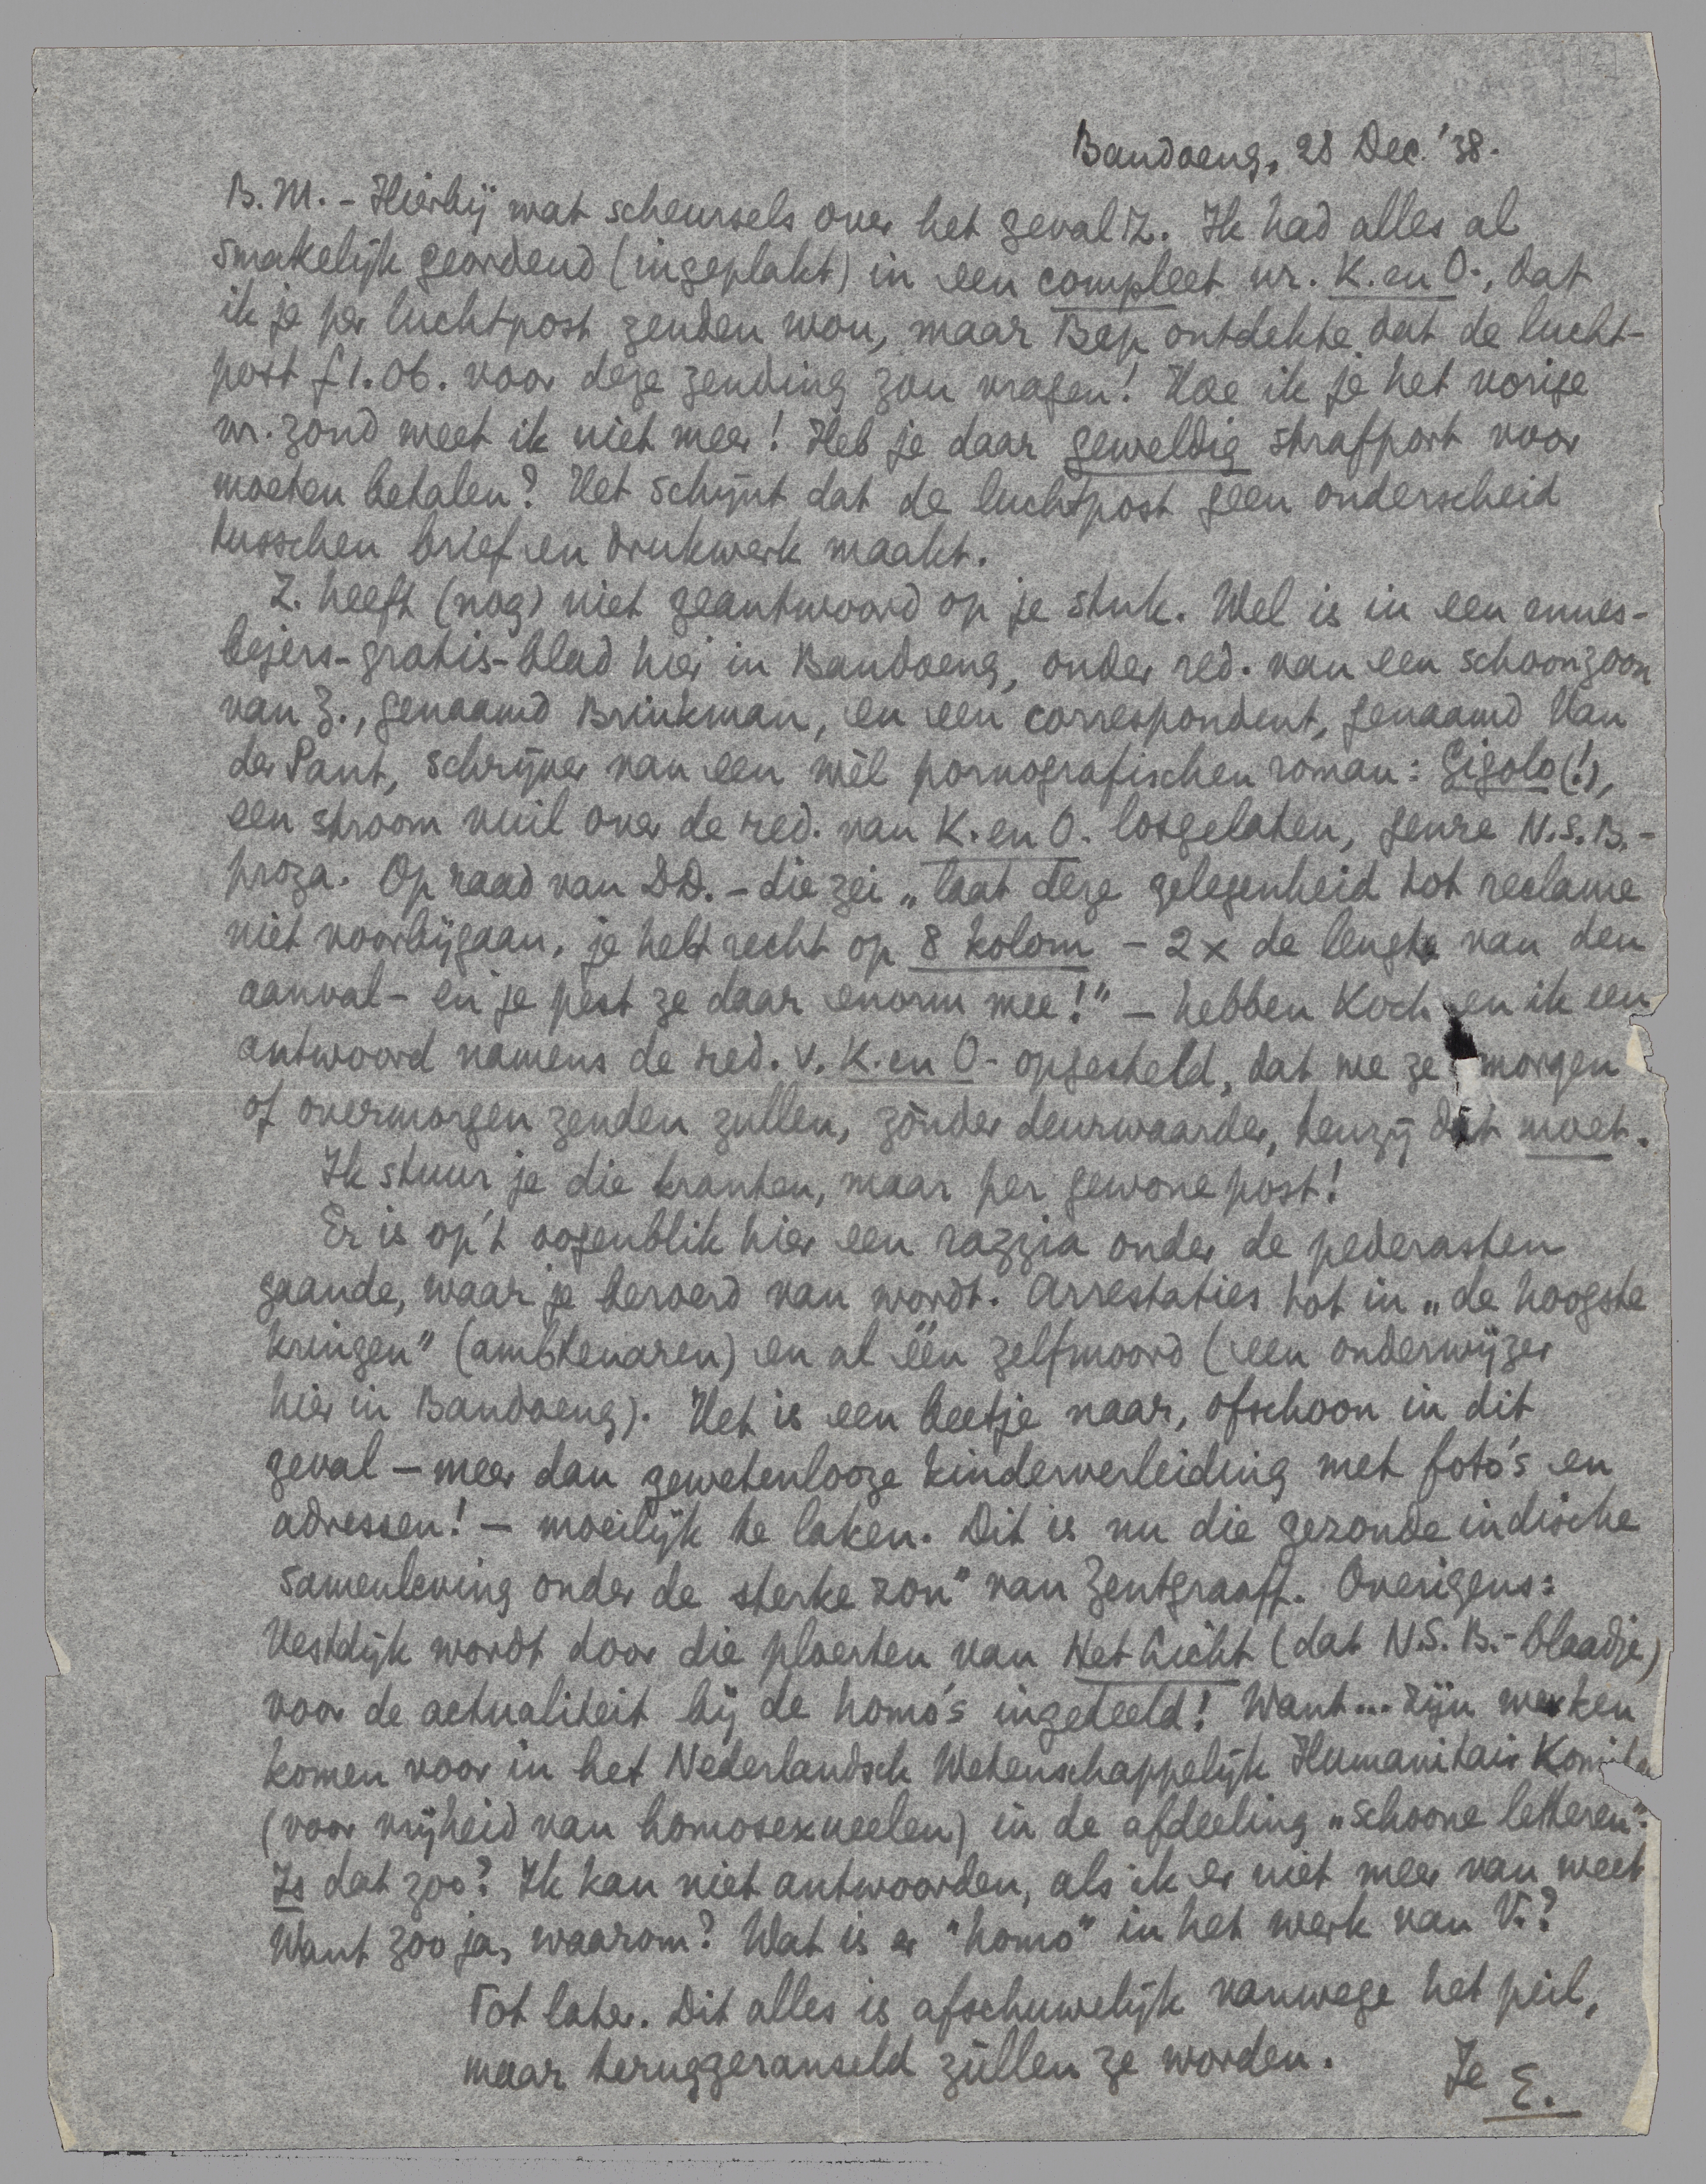 Bandoeng, 28 Dec. '38.
B.M. - Hierbij wat scheursels over het geval Z. Ik had alles al
smakelijk geordend (ingeplakt) in een compleet nr. K. en O., dat
ik je per luchtpost zenden wou, maar Bep ontdekte dat de lucht-
post f 1.06. voor deze zending zou vragen! Hoe ik je het vorige
nr. zond weet ik niet meer! Heb je daar geweldig strafport voor
moeten betalen? Het schijnt dat de luchtpost geen onderscheid
tusschen brief en drukwerk maakt.
Z. heeft (nog) niet geantwoord op je stuk. Wel is in een ennes-
bejers-gratis-blad hier in Bandoeng, onder red. van een schoonzoon
van Z., genaamd Brinkman, en een correspondent, genaamd Van
der Pant, schrijver van een wèl pornografischen roman: Gigolo (!),
een stroom vuil over de red. van K. en O. losgelaten, genre N.S.B.-
proza. Op raad van DD. - die zei „laat deze gelegenheid tot reclame
niet voorbijgaan, je hebt recht op 8 kolom - 2 x de lengte van den
aanval - en je pest ze daar enorm mee!" - hebben Koch en ik een
antwoord namens de red. v. K. en O. opgesteld, dat we ze morgen
of overmorgen zenden zullen, zònder deurwaarder, tenzij dat moet.
Ik stuur je die kranten, maar per gewone post!
Er is op 't oogenblik hier een razzia onder de pederasten
gaande, waar je beroerd van wordt. Arrestaties tot in „de hoogste
kringen" (ambtenaren) en al één zelfmoord (een onderwijzer
hier in Bandoeng). Het is een beetje naar, ofschoon in dit
geval - meer dan gewetenlooze kinderverleiding met foto's en
adressen! - moeilijk te laken. Dit is nu die gezonde indische
samenleving onder de sterke zon" van Zentgraaff. Overigens:
Vestdijk wordt door die ploerten van Het Licht (dat N.S.B.-blaadje)
voor de actualiteit bij de homo's ingedeeld! Want... zijn werken
komen voor in het Nederlandsch Wetenschappelijk Humanitair
(voor vrijheid van homosexueelen) in de afdeeling „schoone letteren".
Is dat zoo? Ik kan niet antwoorden, als ik er niet meer van weet
Want zoo ja, waarom? Wat is er "homo" in het werk van V.?
Tot later. Dit alles is afschuwelijk vanwege het peil,
maar teruggeranseld zùllen ze worden.
Je E.